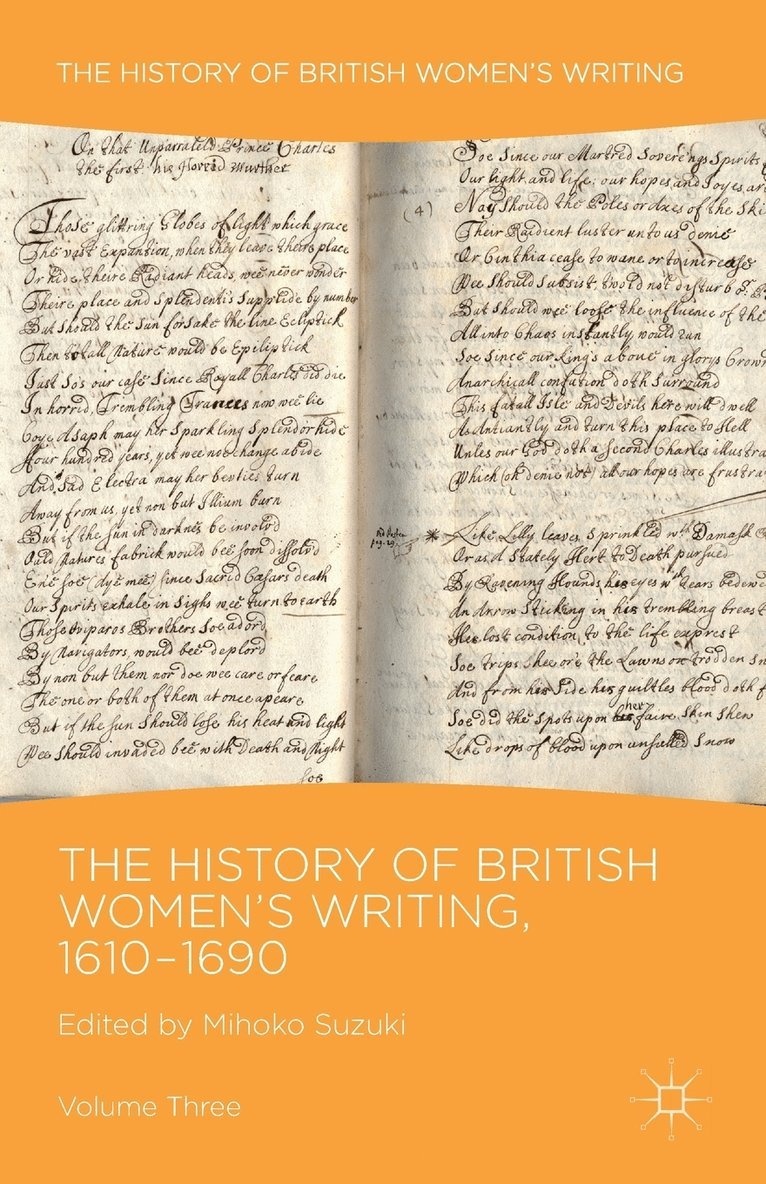 THE HISTORY OF BRITISH WOMEN'S WRITING
On that Unparraleld Prince Charles
the first his Horrid Murther
Those glittring Globes of light which grace
The vast Expantion, when they leave theire place
Or hide theire Radiant heads, wee never wonder
Theire place and Splendentis Supplide by number
But should the Sun forsake the line Ecliptick
Then totall Nature would be Epiliptick
Just So's our case Since Royall Charles did die
In horrid, Trembling Trances now wee lie
Coye Asaph may her Sparkling Splendor hide
ffour hundred years, yet wee noe change abide
And sad Electra may her bevties turn
Away from us, yet non but Illium burn
But if the sun in darknes be involv'd
Ould Natures fabrick would bee soon dissolv'd
Ene soe (Aye mee) since Sacrid Cæsars death
Our Spirits exhale in Sighs wee turn to earth
Those Oviparos Brothers Soe ador'd
By Navigators, would bee deplord
By non but them nor doe wee care or feare
The one or both of them at once apeare
But if the sun Should lose his heat and light
Wee Should invaded bee with Death and Night
Soe
Soe Since our Martred Soverengs Spirits
Our light and life, our hopes and Joyes are
(4)
Nay Should the Poles or Axes of the Ski
Their Raidient luster unto us denie
Or Cinthia cease to wane or to increase
Wee Should Subsist, twould not disturb o.r
But should wee loose the influence of the
All into Chaos instantly would run
Soe since our King's above in glorys Crown
Anarchicall confution doth Surround
This fatall Isle and Devils here will dwell
As Antiantly and turn this place to Hell
Unles our God doth a Second Charles illustra
Which (oh denie not) all our hopes are frustra
pag. 29
* Like Lilly leaves Sprinkled wth Damask
Or as A Stately Hert to Death pursued
By Ravening Hounds his eyes wth tears bedewe
An Arrow Sticking in his trembling breast
His lost condition to the life exprest
Soe trips Shee o're the Lawns on trodden Sn
And from his Side his guiltles blood doth f
Soe did the Spots upon her faire Skin Shew
Like drops of blood upon unsullied Snow
THE HISTORY OF BRITISH
WOMEN'S WRITING,
1610–1690
Edited by Mihoko Suzuki
Volume Three